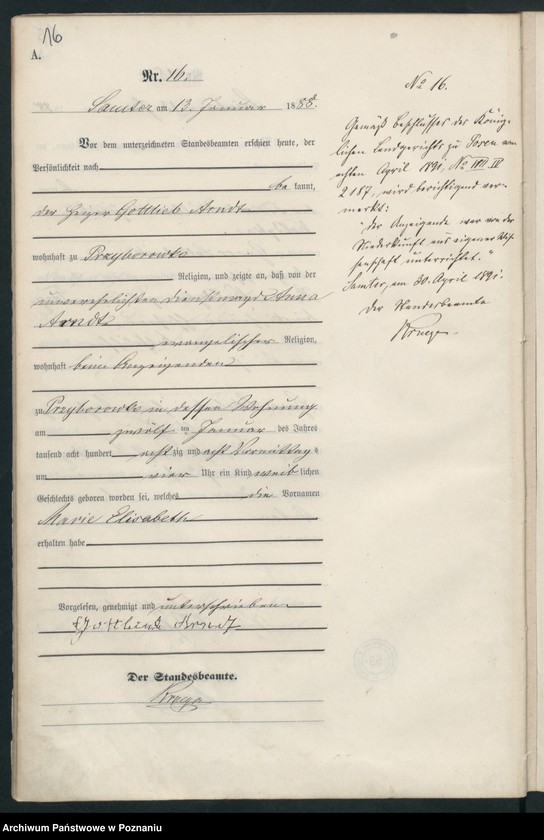 16
A.
Nr. 16.
Samter am 13. Januar 1888.
Vor dem unterzeichneten Standesbeamten erschien heute, der
Persönlichkeit nach
be kannt,
der Gottlieb Arndt
wohnhaft zu Przyborowko
Religion, und zeigte an, daß von der
unverehelichten Dienstmagd Anna
Arndt
evangelischer Religion,
wohnhaft beim Anzeigenden
zu Przyborowko in dessen Wohnung
am zwölf ten Januar des Jahres
tausend acht hundert acht zig und acht Vormittags
um vier Uhr ein Kind weib lichen
Geschlechts geboren worden sei, welches die Vornamen
Marie Elisabeth
erhalten habe
Vorgelesen, genehmigt und unterschrieben
Gottlieb Arndt
Der Standesbeamte.
No 16.
Gemäß Beschlusses des König-
lichen Landgerichts zu Posen vom
achten April 1891, No IV
2187, wird berichtigend ver-
merkt:
"der Anzeigende war von der
Niederkunft aus eigener Wis-
senschaft unterrichtet."
Samter, am 30. April 1891.
Der Standesbeamte
Archiwum Państwowe w Poznaniu